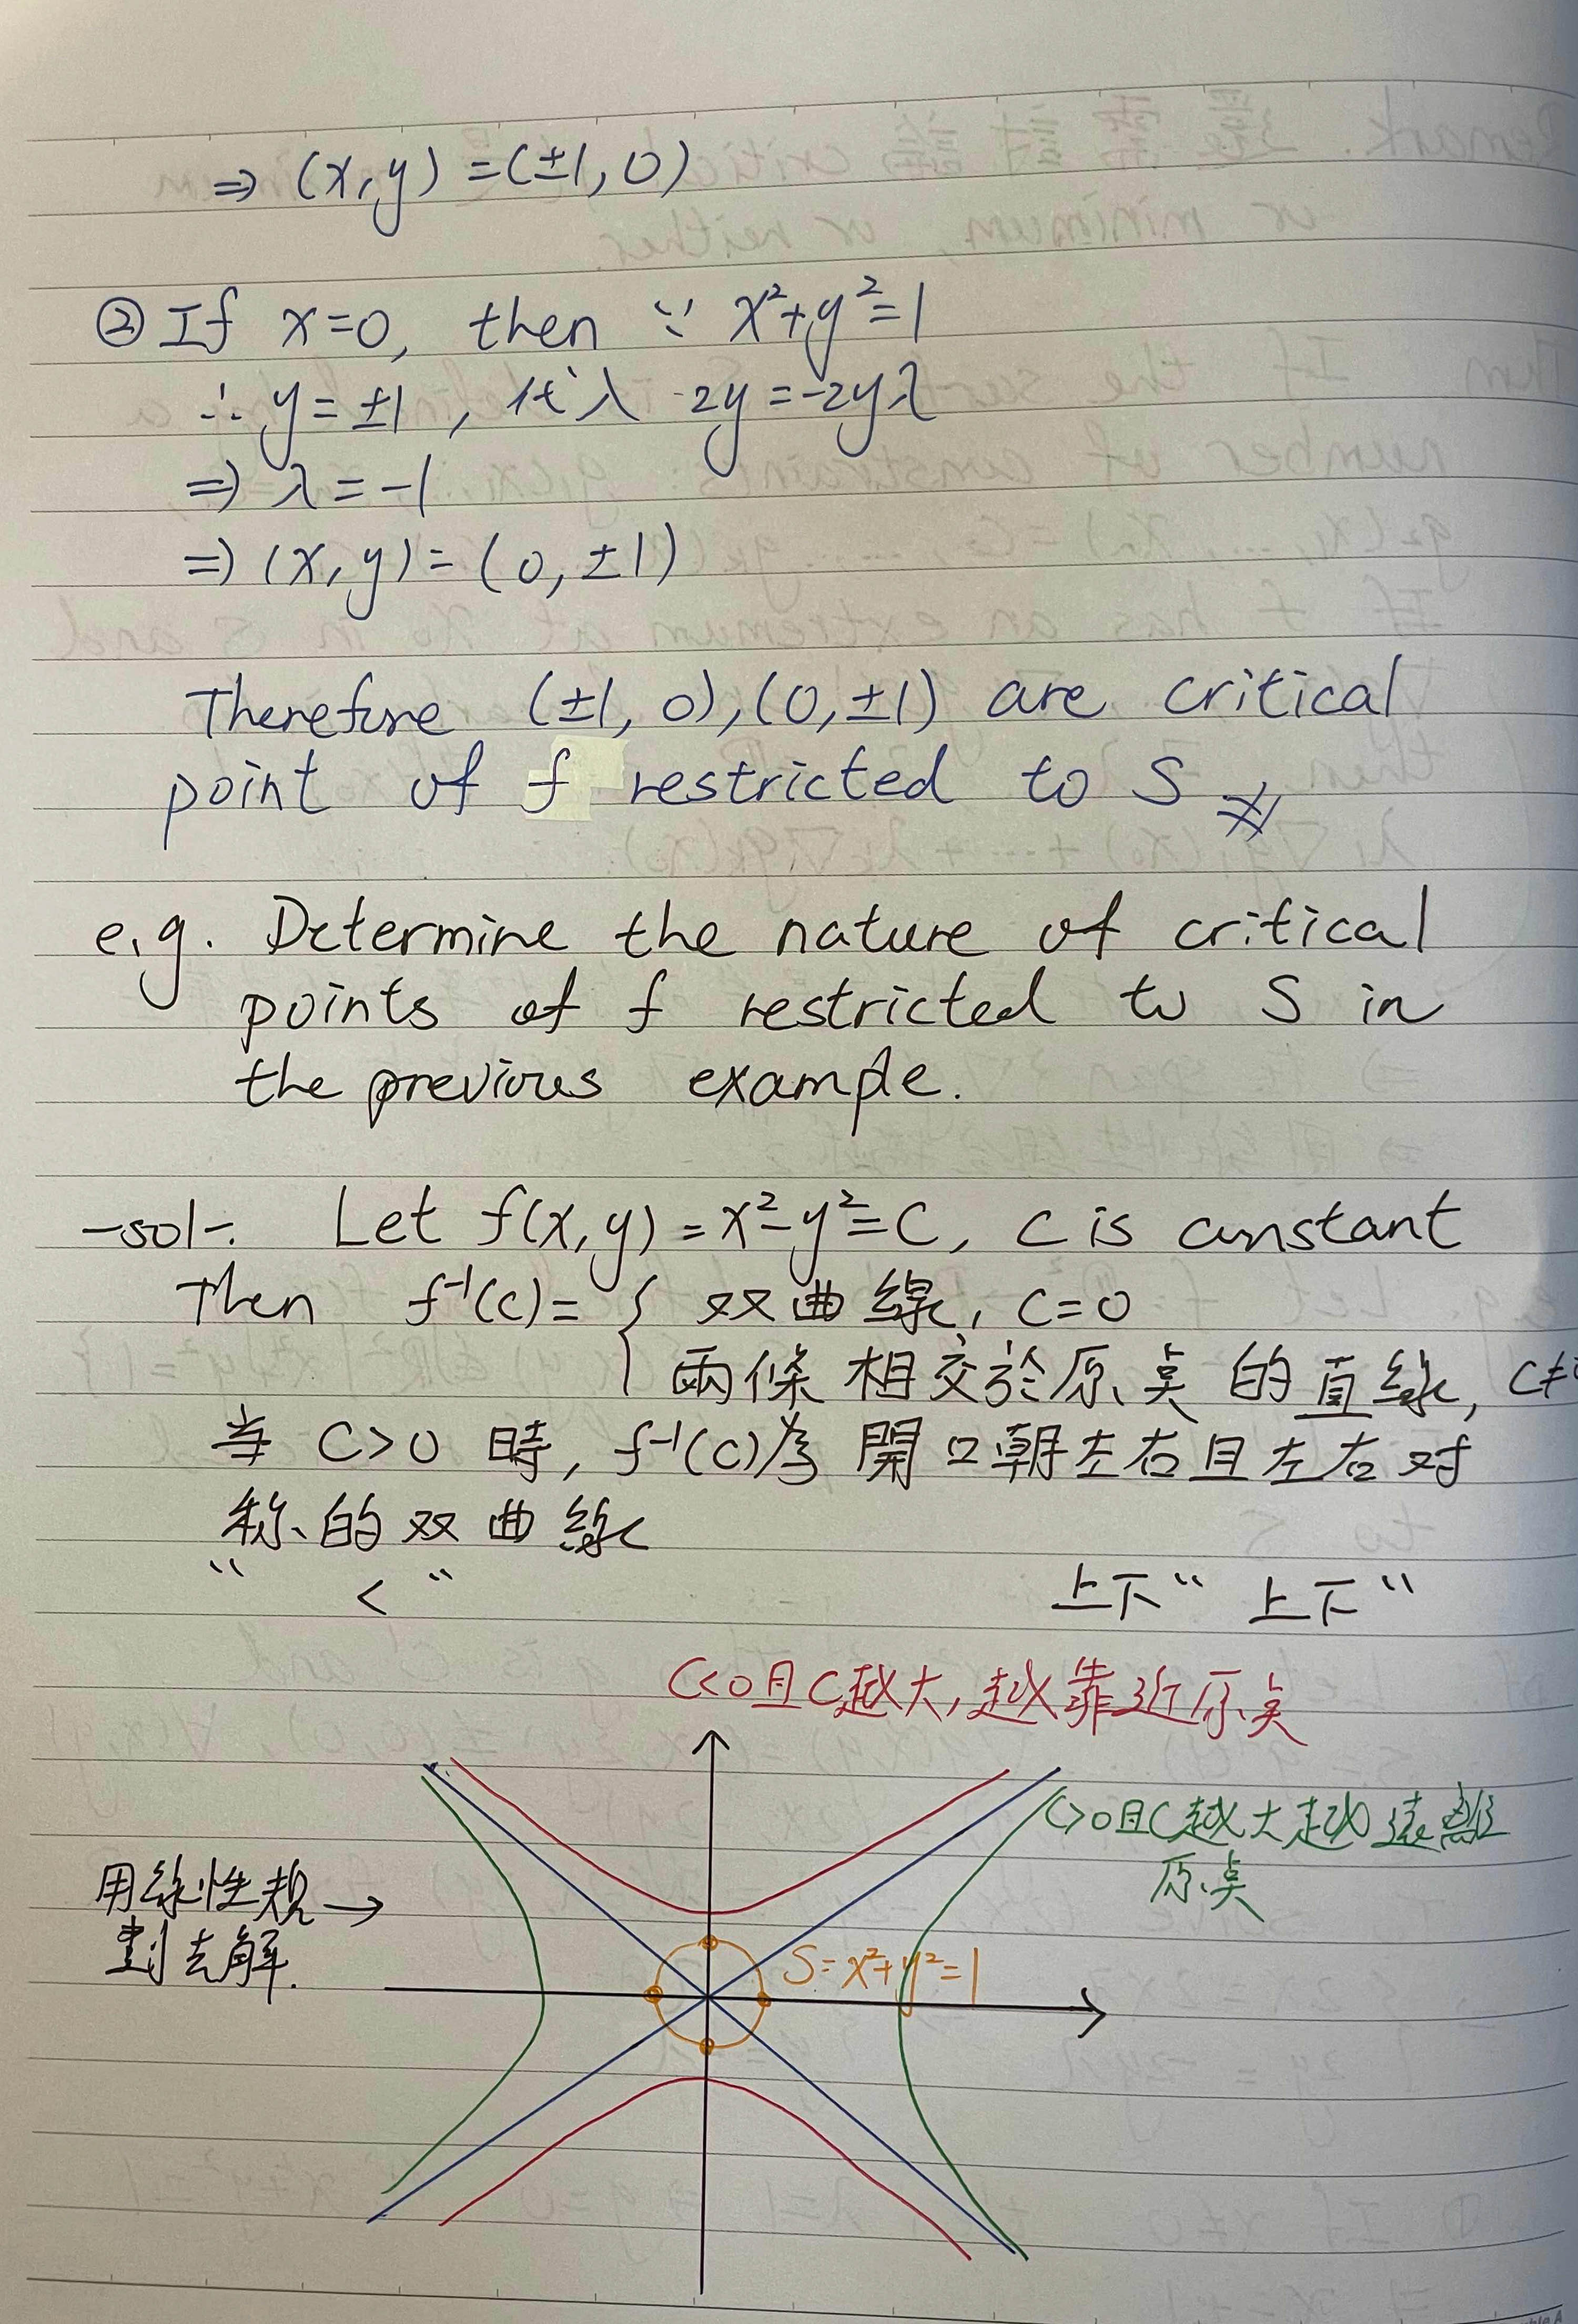 ⇒ (x,y) = (±1, 0)
② If x=0, then ∵ x²+y²=1
∴ y = ±1, 代入 2y = -2yλ
⇒ λ = -1
⇒ (x,y) = (0, ±1)
Therefore (±1, 0), (0, ±1) are critical
point of f restricted to S
e.g. Determine the nature of critical
points of f restricted to S in
the previous example.
-sol-. Let f(x,y) = x²-y²=C, C is constant
Then f⁻¹(c) = { 双曲線, C=0
兩條相交於原点的直線, C≠0
当 C>0 時, f⁻¹(c)為開口朝左右且左右对
称的双曲線
" < " 上下 " 上下 "
C<0且C越大,越靠近原点
C>0且C越大越遠離
原点
用線性規→
劃去解.
S=x²+y²=1